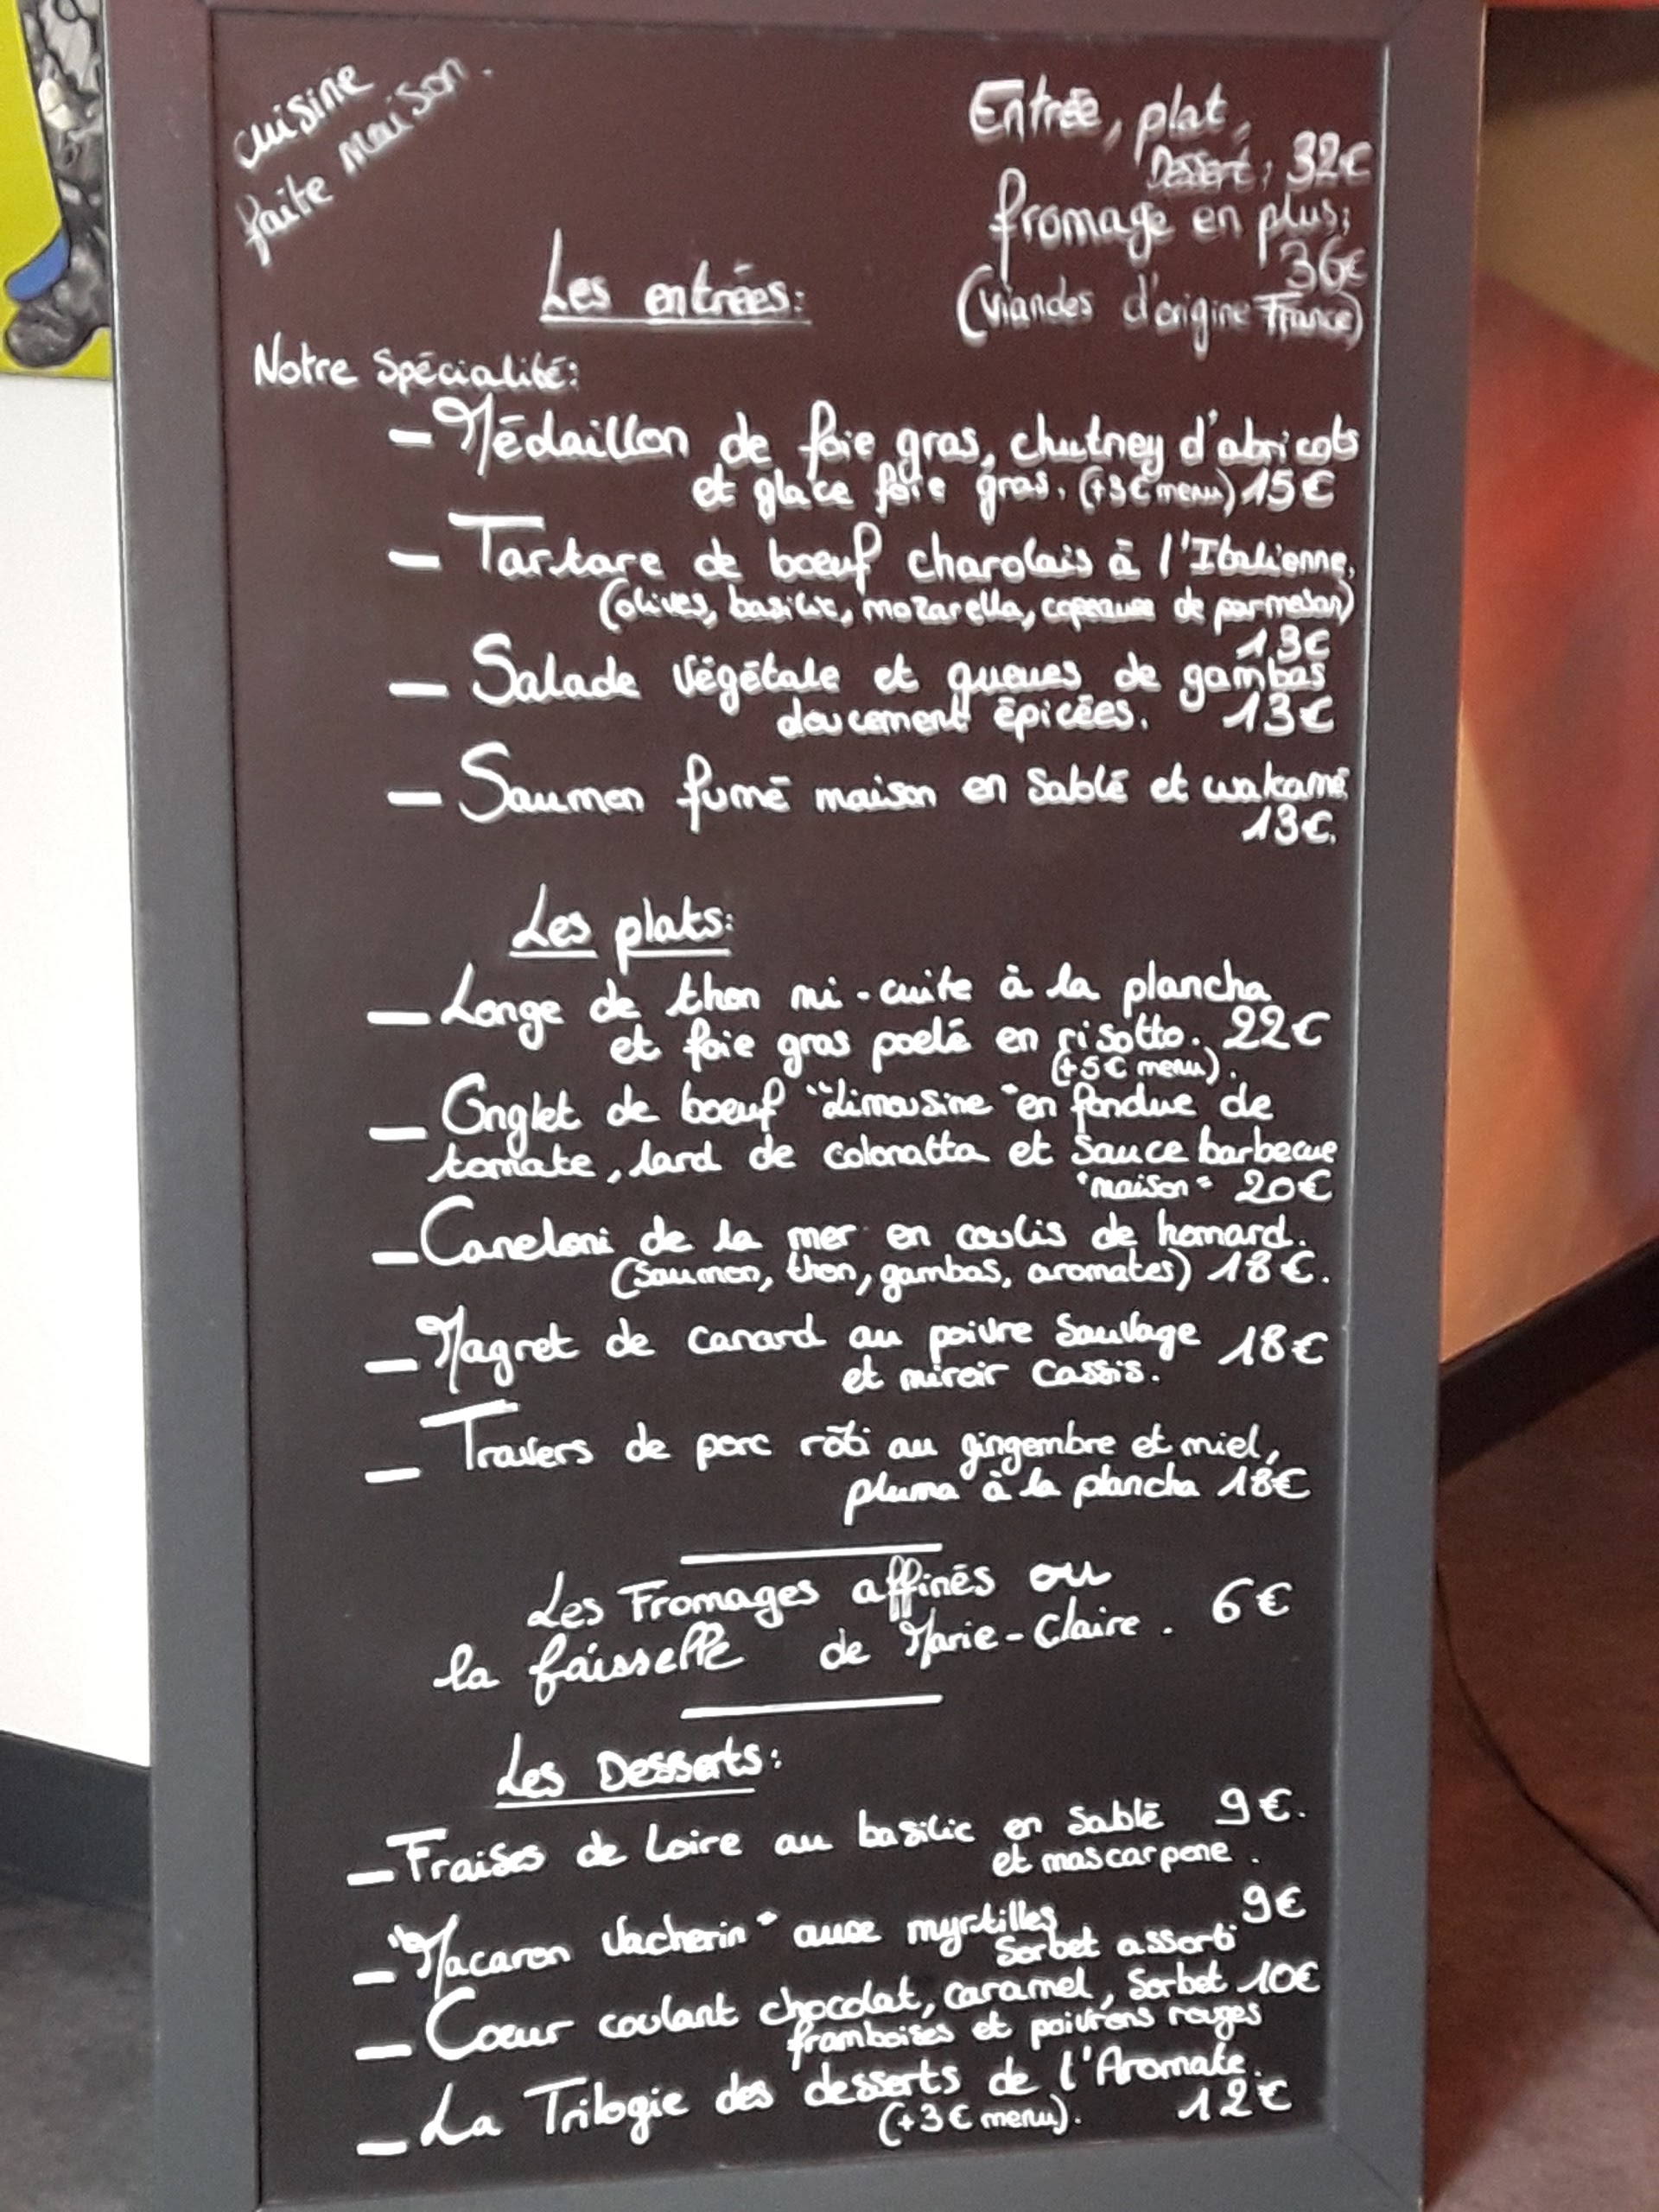 cuisine
faite Maison.
Entrée, plat,
Dessert; 32€
fromage en plus;
36€
(viandes d'origine France)
Les entrées:
Notre Spécialité:
– Médaillon de foie gras, chutney d'abricots
et glace foie gras. (+3€ menu) 15€
– Tartare de boeuf charolais à l'Italienne,
(olives, basilic, mozarella, copeaux de parmesan)
13€
– Salade végétale et queues de gambas
doucement épicées. 13€
– Saumon fumé maison en Sablé et wakamé
13€.
Les plats:
– Longe de thon mi-cuite à la plancha
et foie gras poelé en risotto. 22€
(+5€ menu).
– Onglet de boeuf "limousine" en fondue de
tomate, lard de colonatta et Sauce barbecue
"maison" 20€
– Caneloni de la mer en coulis de homard.
(Saumon, thon, gambas, aromates) 18€.
– Magret de canard au poivre Sauvage 18€
et miroir Cassis.
– Travers de porc rôti au gingembre et miel,
pluma à la plancha 18€
Les Fromages affinés ou
la faisselle de Marie-Claire. 6€
Les Desserts:
– Fraises de Loire au basilic en Sablé 9€.
et mascarpone.
– "Macaron Vacherin" aux myrtilles 9€
Sorbet assorti
– Coeur coulant chocolat, caramel, Sorbet 10€
framboises et poivrons rouges
– La Trilogie des desserts de l'Aromate.
(+3€ menu). 12€